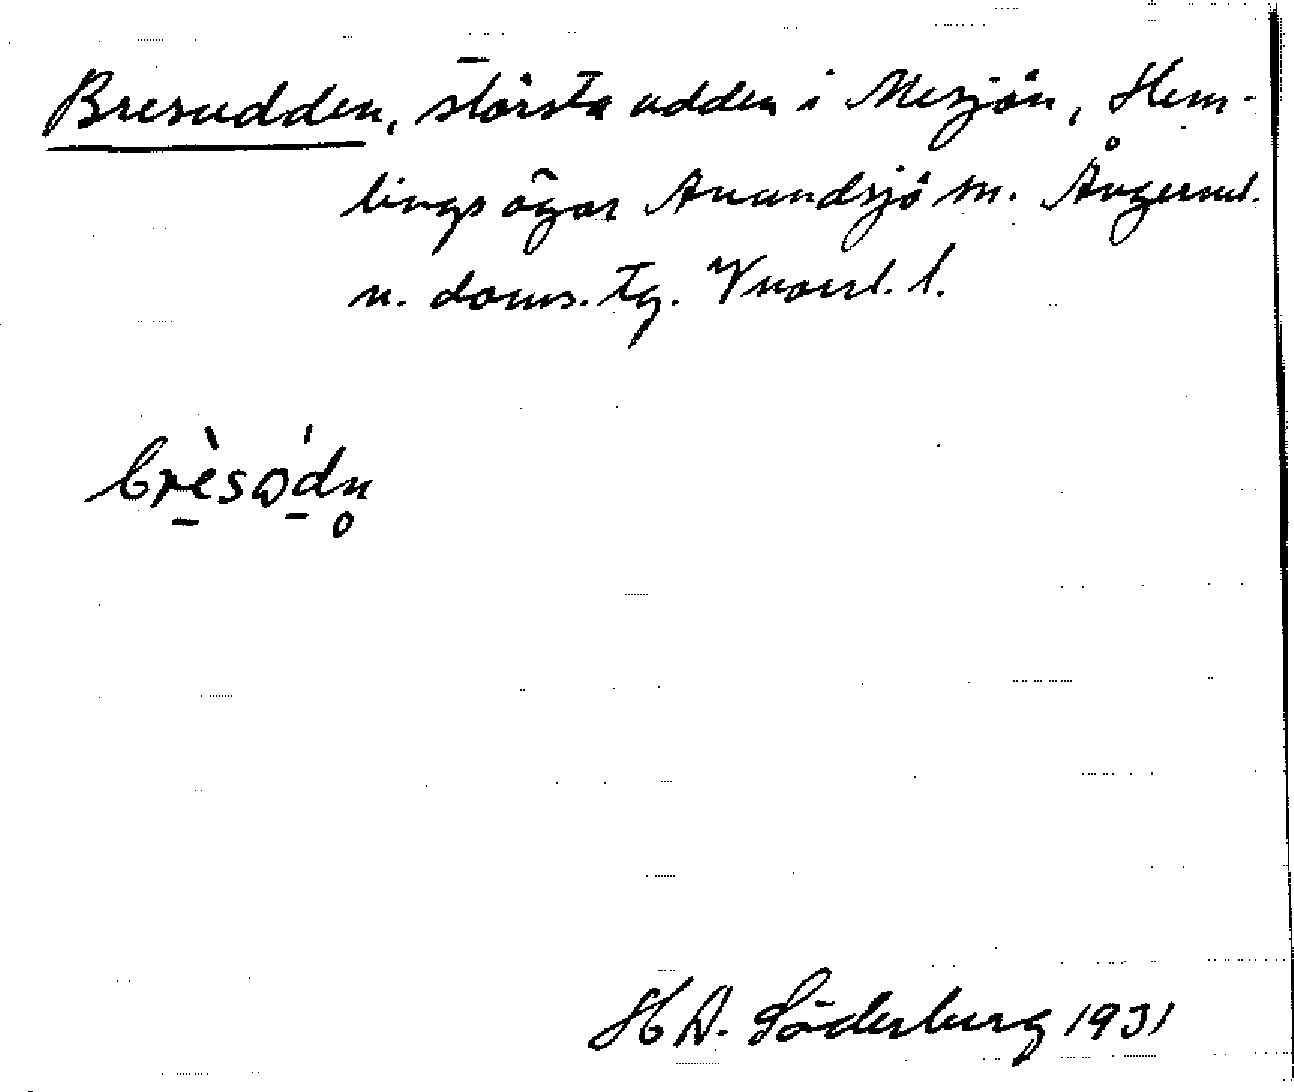 Bresudden, största udden i Mesjön, Hem-
lings ägor Anundsjö sn. Ångerml.
n. doms. tg. Vnorrl. l.
brèsὼdn̥
H D. Söderberg 1931